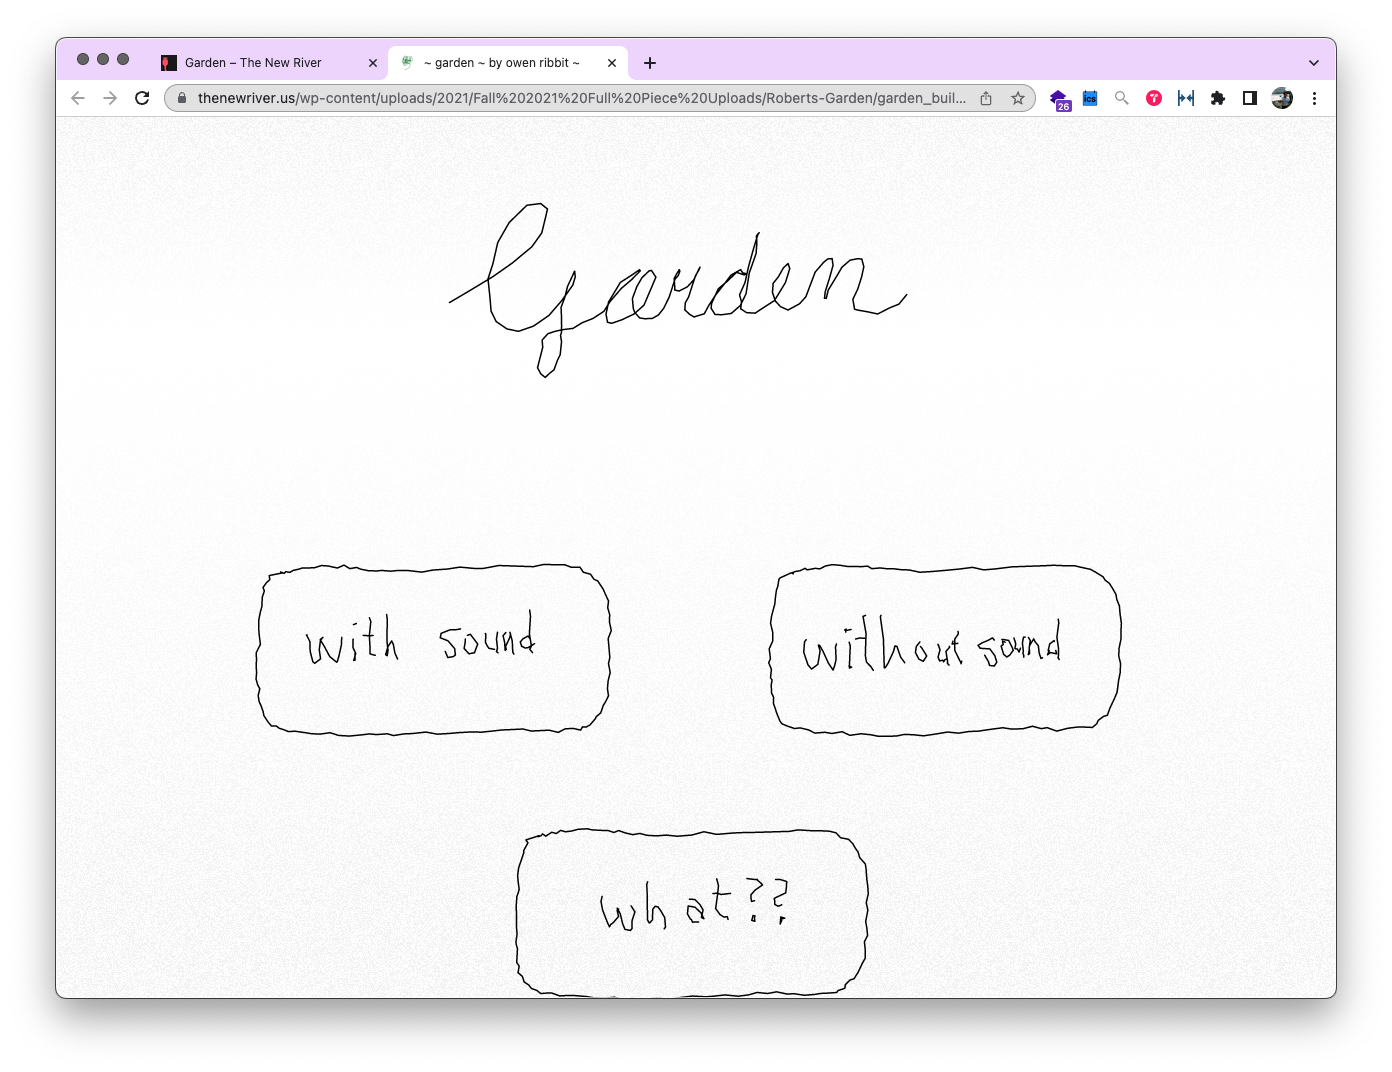 Garden – The New River
~ garden ~ by owen ribbit ~
thenewriver.us/wp-content/uploads/2021/Fall%202021%20Full%20Piece%20Uploads/Roberts-Garden/garden_buil...
26
ics
Garden
with sound
without sound
what??